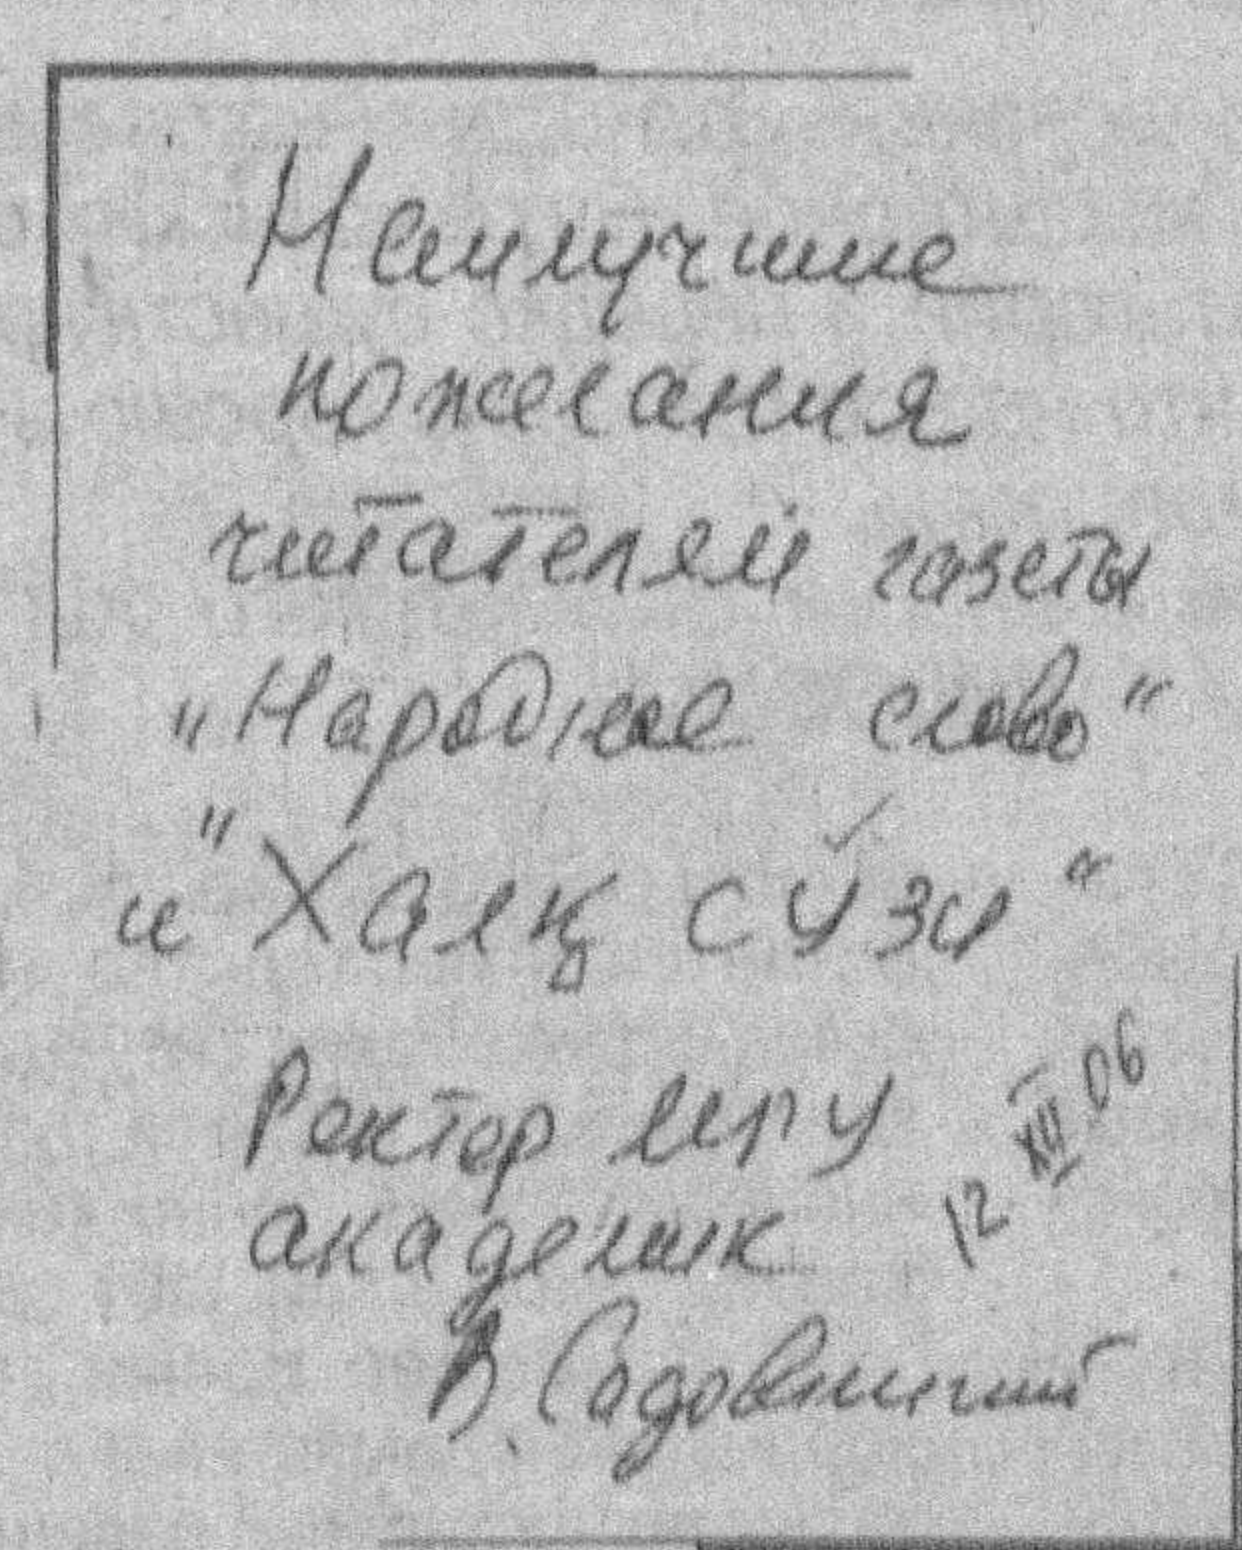 Наилучшие
пожелания
читателям газеты
„Народное слово“
и "Халқ сўзи"
Ректор МГУ
академик
В. Садовничий
12 XII 06